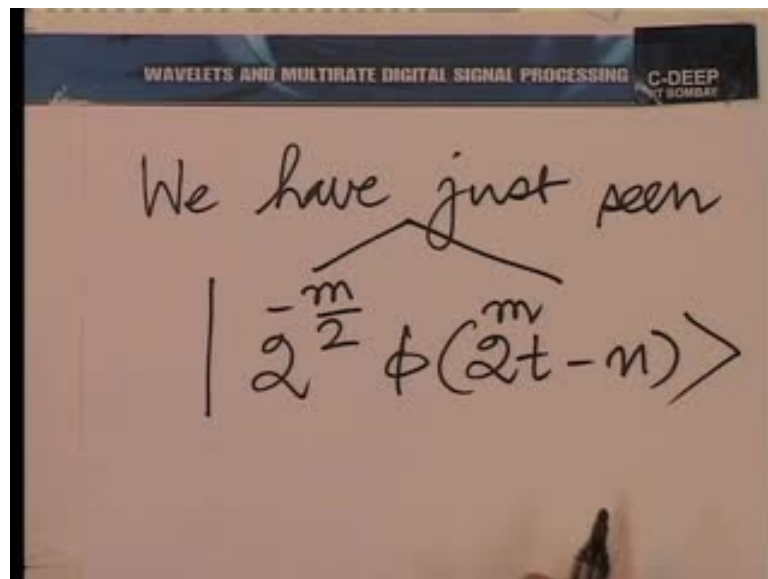 WAVELETS AND MULTIRATE DIGITAL SIGNAL PROCESSING
C-DEEP
IIT BOMBAY
We have just seen
| 2^{-m/2} ϕ(2^m t - n)>